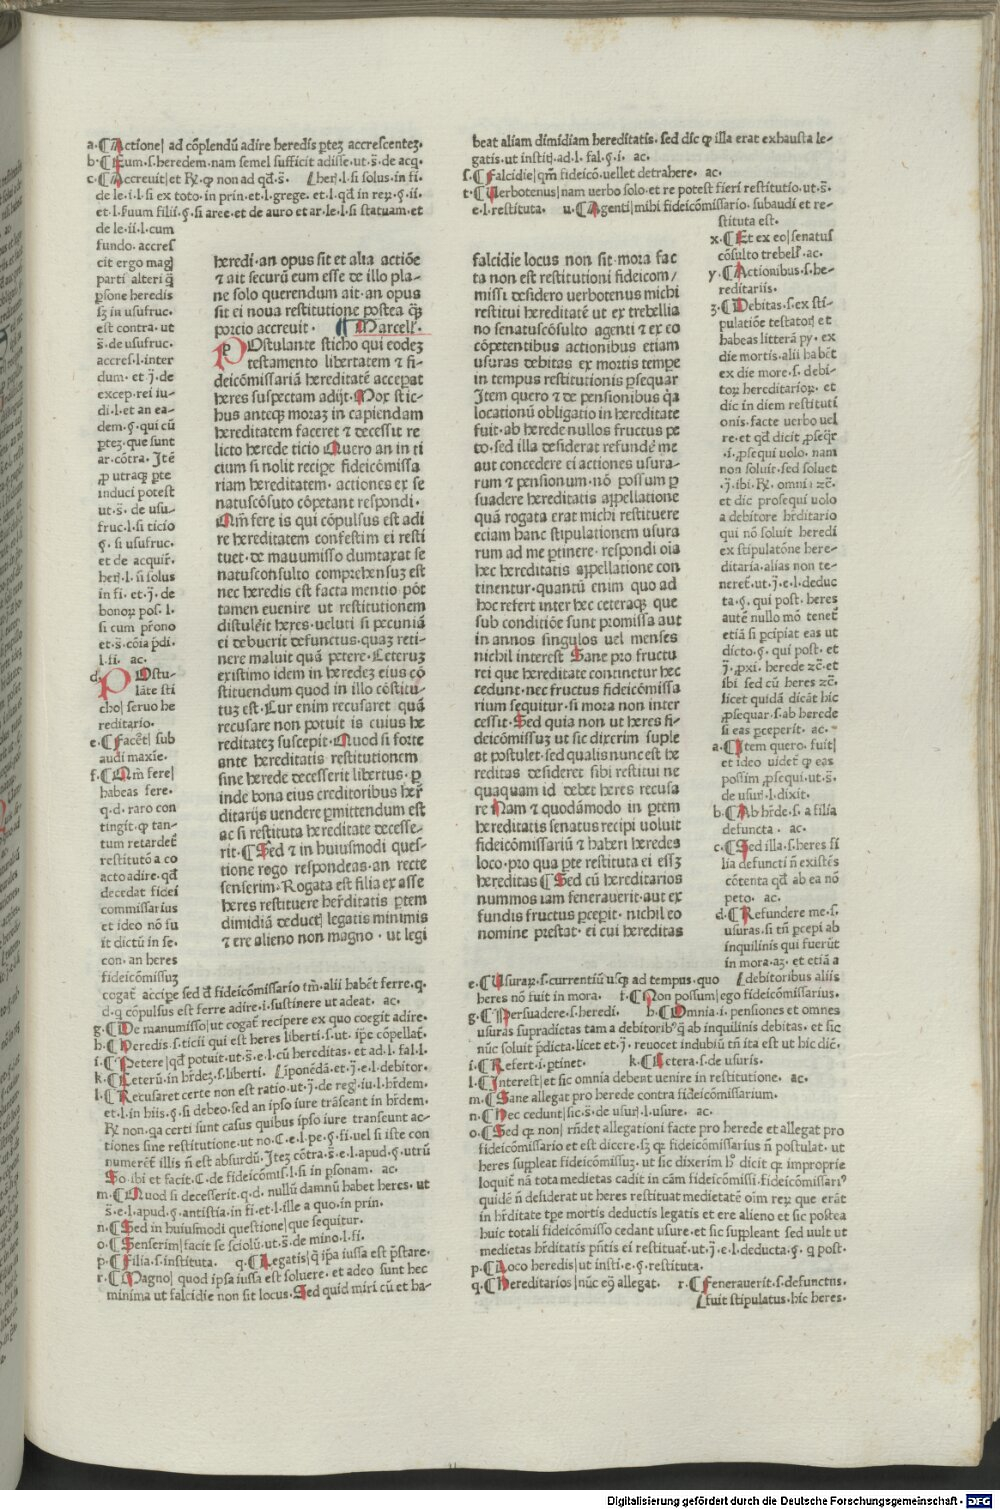 a·¶Actione| ad cōplendū adire heredis ꝑteʒ accrescenteʒ·
b·¶Eum·s·heredem·nam semel sufficit adisse·ut·s̄·de acq·
c·¶Accreuit|et ℞·ꝙ non ad qd̄·s̄·
de le·i·l·si ex toto·in prin·et·l·grege·et·l·qd̄ in reꝝ·§·ii·
et·l·fuum filii·§·si aree·et de auro et ar·le·l·si statuam·et
de le·ii·l·cum
fundo· accres
cit ergo mag|
parti alteri q̄
ꝑsone heredis
sʒ in usufruc·
est contra·ut
s̄·de usufruc·
accres·l·inter
dum·et·j̄·de
excep·rei iu-
di·l·et an ea-
dem·§·qui cū
ꝑteʒ·que sunt
ar·cōtra· Itē
ꝓ utraqʒ ꝑte
induci potest
ut·s̄·de usu-
fruc·l·si ticio
§·si usufruc·
et de acquir̄·
her|·l·si solus
in fi·et·j̄·de
bonoꝝ pos·l·
si cum pr̄ono
et·s̄·cōia p̄di·
l·fi· ac·
d·POstu-
lāte sti
cho| seruo he
reditario·
e·¶Facēt| sub
audi maxīe·
f·¶Qm̄ fere|
habeas fere·
q·d·raro con
tingit·ꝙ tan-
tum retardet̄
restitutō a co
acto adire·qd̄
decedat fidei
commissarius
et ideo nō fu
it dictū in se·
con·an heres
fideicōmissuʒ
cogat̄ accipe sed d̄ fideicōmissario tm̄·alii habēt ferre·q·
d·q cōpulsus est ferre adire·i·sustinere ut adeat· ac·
g·¶De manumisso|ut cogat̄ recipere ex quo coegit adire·
h·¶Heredis·s·ticii qui est heres liberti·s·ut·ip̄e cōpellat̄·
i·¶Petere|qd̄ potuit·ut·s̄·e·l·cū hereditas·et ad·l·fal·l·
k·¶Ceterū·in hr̄deʒ·s·liberti·
l·¶Recusaret certe non est ratio·ut·j̄·de reg·iu·l·hr̄dem·
et·l·in hiis·§·si debeo·sed an ipso iure trāseant in hr̄dem·
℞ non·qa certi sunt casus quibus ipso iure transeunt ac-
tiones sine restitutione·ut no·C·e·l·pe·§·fi·uel si iste con
numeret̄ illis n̄ est absurdū·Iteʒ cōtra·s̄·e·l·apud·§·utrū
So·ibi et facit·C·de fideicōmis·l·si in ꝑsonam· ac·
m·¶Quod si decesserit·q·d·nullū damnū habet heres·ut
s̄·e·l·apud·§·antistia·in fi·et·l·ille a quo·in prin·
n·¶Sed in huiusmodi questione|que sequitur·
o·¶Senserim|facit se sciolū·ut·s̄·de mino·l·fi·
p·¶Filia·s·instituta· q·¶Legatis|q̄ ip̄a iussa est p̄stare·
r·¶Magno| quod ipsa iussa est soluere·et adeo sunt hec
minima ut falcidie non sit locus·Sed quid miri cū et ha-
heredi·an opus sit et alia actiōe
⁊ ait securū eum esse de illo pla-
ne solo querendum ait·an opus
sit ei noua restitutione postea q̄ʒ
porcio accreuit· ¶ Marcell'·
POstulante sticho qui eodeʒ
testamento libertatem ⁊ fi-
deicōmissariā hereditatē accepat
heres suspectam adijt·Mox stic-
hus anteqʒ moraʒ in capiendam
hereditatem faceret ⁊ decessit re
licto herede ticio Quero an in ti
cium si nolit recipe fideicōmissa
riam hereditatem· actiones ex se
natuscōsuto cōpetant respondi·
Qm̄ fere is qui cōpulsus est adi
re hereditatem confestim ei resti
tuet·de mauumisso dumtarat se
natusconsulto comprehensuʒ est
nec heredis est facta mentio·pōt
tamen euenire ut restitutionem
distulēit heres·ueluti si pecuniā
ei debuerit defunctus·quaʒ reti-
nere maluit quā petere·Ceteruʒ
existimo idem in heredeʒ eius cō
stituendum quod in illo cōstitu-
tuʒ est·Cur enim recusaret quā
recusare non potuit is cuius he
reditateʒ suscepit·Quod si forte
ante hereditatis restitutionem
sine herede decesserit libertus·ꝑ
inde bona eius creditoribus her̄
ditarijs uendere ꝑmittendum est
ac si restituta hereditate decesse-
rit·¶Sed ⁊ in huiusmodi ques-
tione rogo respondeas·an recte
senserim·Rogata est filia ex asse
heres restituere her̄ditatis ꝑtem
dimidiā deduct| legatis minimis
⁊ ere alieno non magno· ut legi
beat aliam dimidiam hereditatis·sed dic ꝙ illa erat exhausta le-
gatis·ut instit|·ad·l·fal·§·i· ac·
s·¶Falcidie|qm̄ fideicō·uellet detrahere· ac·
t·¶Verbotenus|nam uerbo solo·et re potest fieri restitutio·ut·s̄·
e·l·restituta· u·¶Agenti|mihi fideicōmissario·subaudi et re-
stituta est·
falcidie locus non sit·mora fac
ta non est restitutioni fideicom/
missi·desidero uerbotenus michi
restitui hereditatē ut ex trebellia
no senatuscōsulto agenti ⁊ ex eo
cōpetentibus actionibus etiam
usuras debitas ex mortis tempe
in tempus restitutionis ꝑsequar
Item quero ⁊ de pensionibus q̄a
locationū obligatio in hereditate
fuit·ab herede nullos fructus pe
to·sed illa desiderat refundē me
aut concedere ei actiones usura-
rum ⁊ pensionum·nō possum ꝑ
suadere hereditatis appellatione
quā rogata erat michi restituere
eciam hanc stipulationem usura
rum ad me ꝑtinere·respondi oīa
hec hereditatis appellatione con
tinentur·quantū enim quo ad
hoc refert inter hec ceteraqʒ que
sub conditiōe sunt promissa aut
in annos singulos uel menses
nichil interest Sane pro fructu
rei que hereditate continetur hec
cedunt·nec fructus fideicōmissa
rium sequitur·si mora non inter
cessit·Sed quia non ut heres fi-
deicōmissuʒ ut sic dixerim suple
at postulet·sed qualis nunc est he
reditas desideret sibi restitui ne
quaquam id debet heres recusa
re Nam ⁊ quodāmodo in ꝑtem
hereditatis senatus recipi uoluit
fideicōmissariū ⁊ haberi heredes
loco·pro qua ꝑte restituta ei essʒ
hereditas ¶Sed cū hereditarios
nummos iam fenerauerit·aut ex
fundis fructus ꝑcepit·nichil eo
nomine prestat·ei cui hereditas
x·¶Et ex eo|senatus
cōsulto trebell'·ac·
y·¶Actionibus·s·he-
reditariis·
ʒ·¶Debitas·s·ex sti-
pulatiōe testator| et
habeas litterā ꝑy·ex
die mortis·alii habēt
ex die more·s·debi-
toꝝ hereditarioꝝ·et
dic in diem restituti
onis·facte uerbo uel
re·et qd̄ dicit ꝓseqr̄
·i·ꝓsequi uolo·nam
non soluit·sed soluet
·j̄·ibi·℞·omni·⁊c̄·
et dic prosequi uolo
a debitore hr̄ditario
qui nō soluit heredi
ex stipulatōne here-
ditaria·alias non te-
neret̄·ut·j̄·e·l·deduc
ta·§·qui post·heres
autē nullo mō tenet̄
etiā si pcipiat eas ut
dicto·§·qui post·et
j̄·ꝓxi·herede ⁊c̄·et
ibi sed cū heres ⁊c̄·
licet quidā dicāt hic
ꝓsequar·s·ab herede
si eas ꝑceperit· ac·
a·¶Item quero·fuit|
et ideo uidet̄ ꝙ eas
possim ꝓsequi·ut·s̄·
de usur|·l·dixit·
b·¶Ab hr̄de·s·a filia
defuncta· ac·
c·¶Sed illa·s·heres fi
lia defuncti n̄ existēs
cōtenta qd̄ ab ea nō
peto· ac·
d·¶Refundere me·s·
usuras·si tn̄ ꝑcepi ab
inquilinis qui fuerūt
in mora·aʒ·et etiā a
e·¶Usuraꝝ·s·currentiū usqʒ ad tempus·quo
heres nō fuit in mora· f·¶Non possum|ego fideicōmissarius·
g·¶Persuadere·s·heredi· h·¶Omnia·i·pensiones et omnes
usuras supradictas tam a debitoribꝰ q̄ ab inquilinis debitas·et sic
nūc soluit p̄dicta·licet et·j̄·reuocet indubiū tn̄ ita est ut hic dic̄·
i·¶Refert·i·ꝑtinet· k·¶Cetera·s·de usuris·
l·¶Interest|et sic omnia debent uenire in restitutione· ac·
m·¶Sane allegat pro herede contra fideicōmissarium·
n·¶Nec cedunt|sic·s̄·de usur|·l·usure· ac·
o·¶Sed qʒ non| rn̄det allegationi facte pro herede et allegat pro
fideicōmissario et est dicere·sʒ qʒ fideicōmissarius n̄ postulat·ut
heres suppleat fideicōmissuʒ·ut sic dixerim hꝰ dicit qʒ improprie
loquit̄·nā tota medietas cadit in cām fideicōmissi·fideicōmissariꝰ
quidē n̄ desiderat ut heres restituat medietatē oīm reꝝ que erāt
in hr̄ditate tp̄e mortis deductis legatis et ere alieno et sic postea
huic totali fideicōmisso cedant usure·et sic suppleant sed uult ut
medietas hr̄ditatis pn̄tis ei restituat̄·ut·j̄·e·l·deducta·§·q post·
p·¶Loco heredis|ut insti·e·§·restituta·
q·¶Hereditarios|nūc eꝫ allegat· r·¶Fenerauerit·s·defunctus·
fuit stipulatus·hic heres·
Digitalisierung gefördert durch die Deutsche Forschungsgemeinschaft - DFG